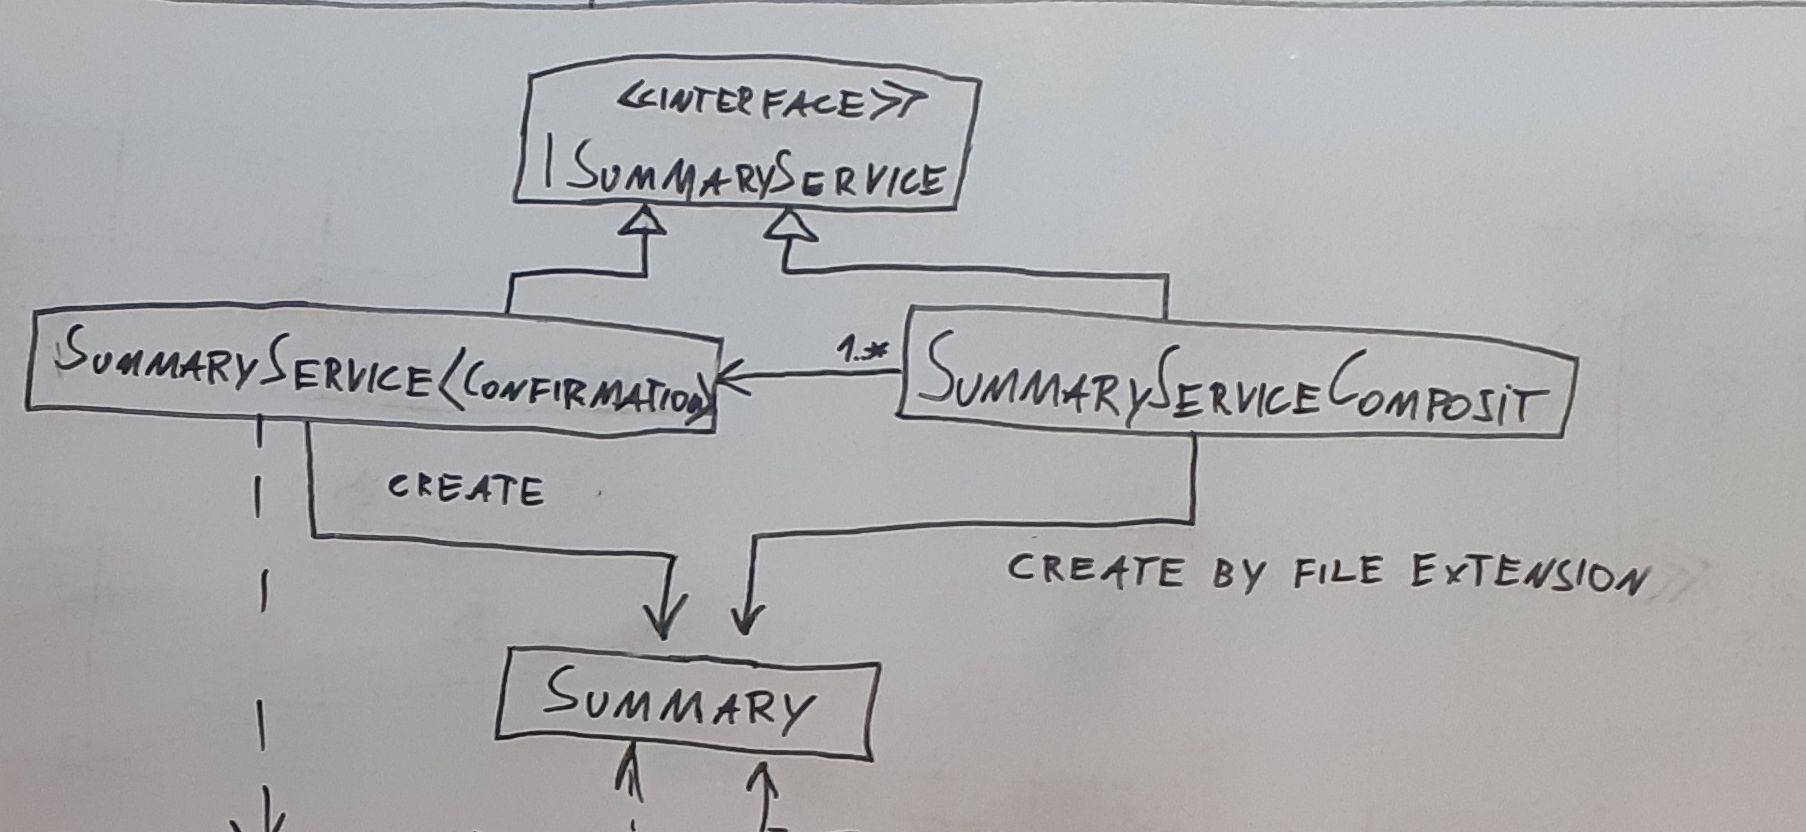 <<INTERFACE>>
ISUMMARYSERVICE
SUMMARYSERVICE<CONFIRMATION>
1..*
SUMMARYSERVICECOMPOSIT
CREATE
CREATE BY FILE EXTENSION
SUMMARY